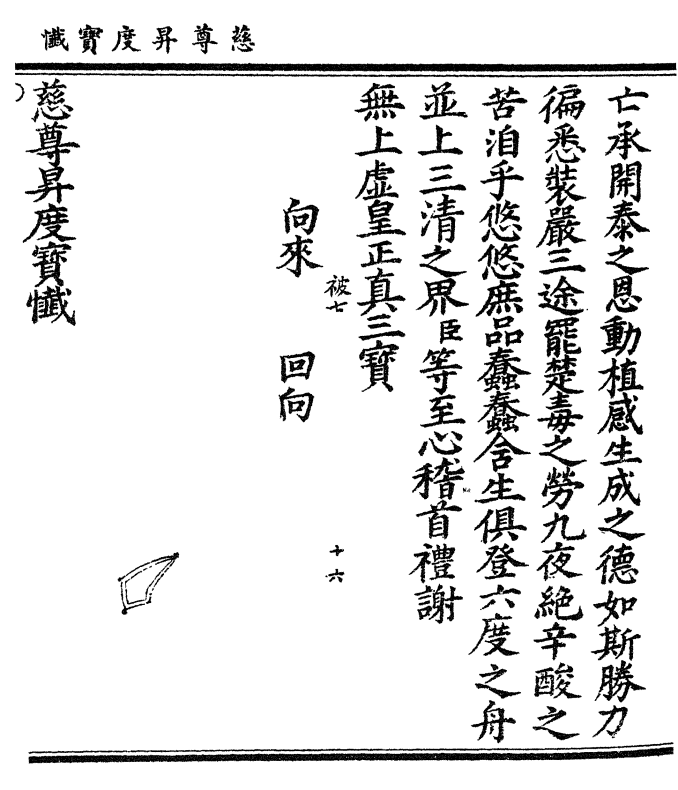 慈尊昇度寶懺
亡承開泰之恩動植感生成之德如斯勝力
徧悉裝嚴三途罷楚毒之勞九夜絕辛酸之
苦洎乎悠悠庶品蠢蠢含生俱登六度之舟
並上三清之界臣等至心稽首禮謝
無上虛皇正真三寶
被七 十六
向來 回向
慈尊昇度寶懺